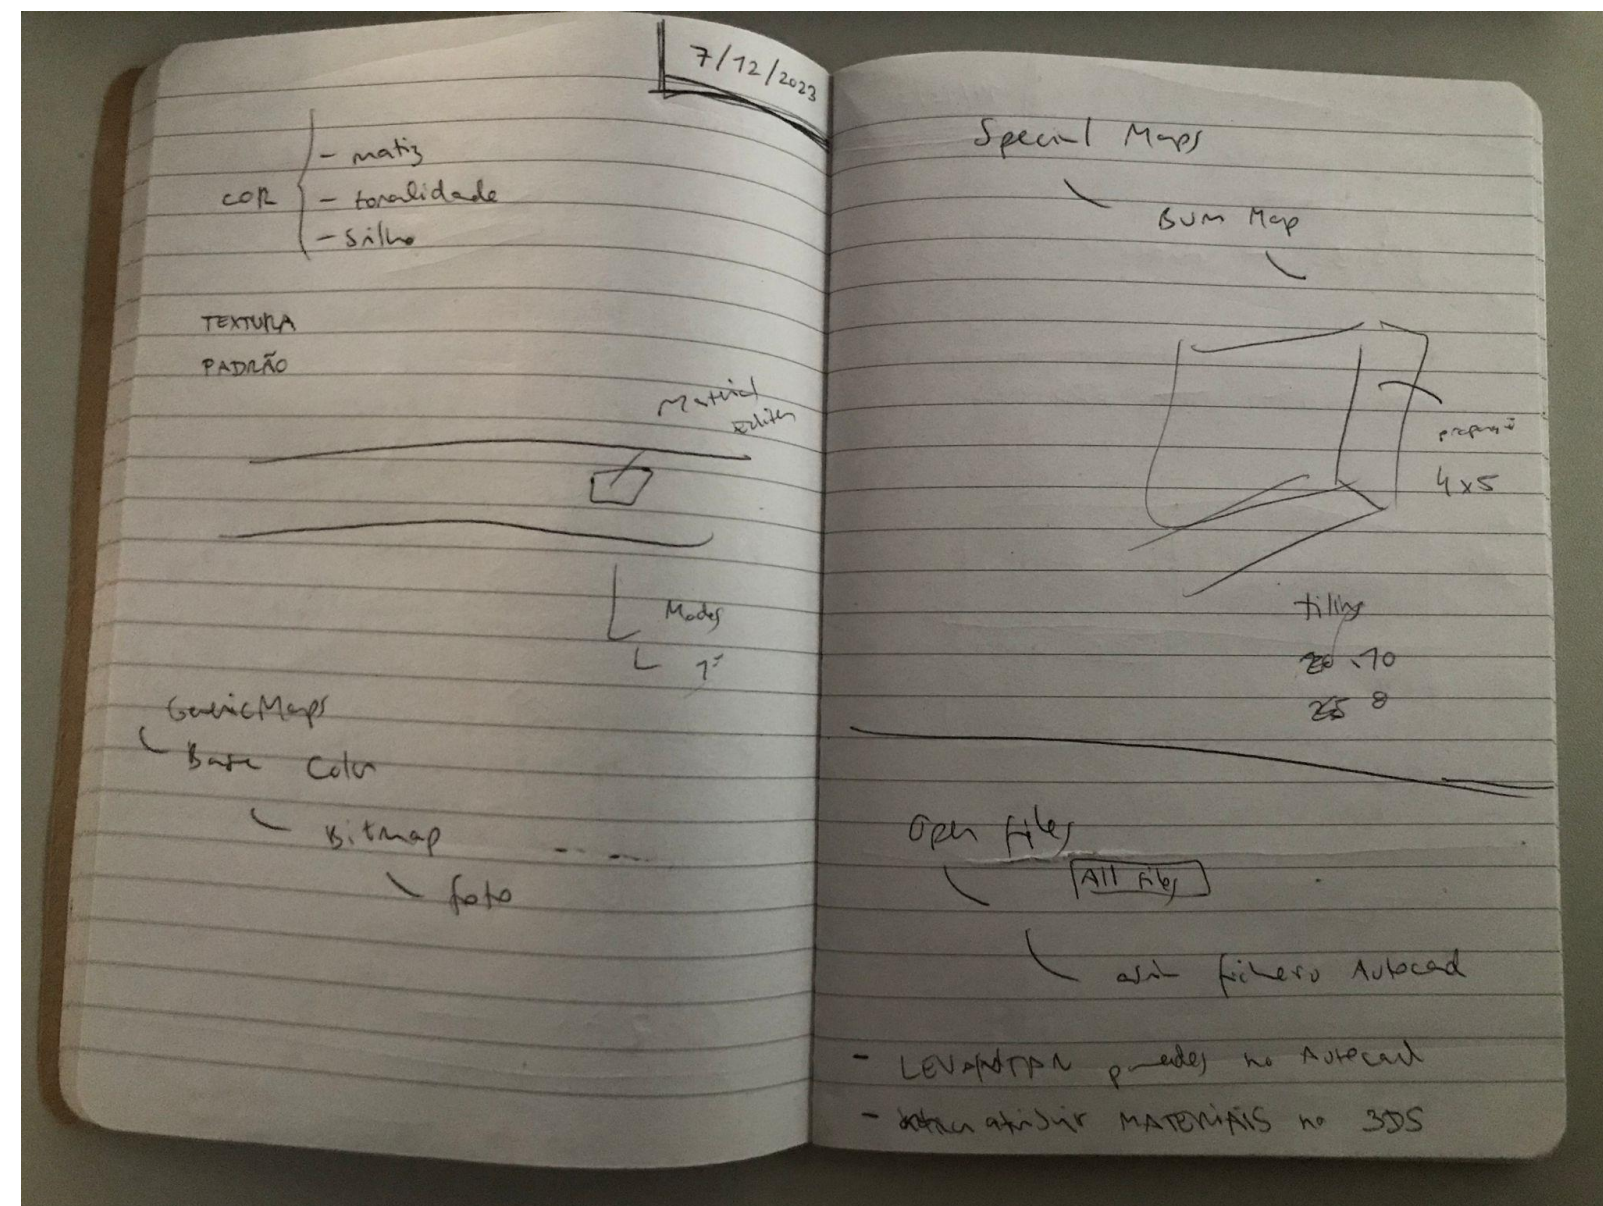 7/12/2023
COR
- matiz
- tonalidade
- Silho
TEXTURA
PADRÃO
Material
Editor
Modes
1º
GenericMaps
Base Color
Bitmap
foto
Special Maps
BUM Map
4x5
tilling
20 . 10
25 8
Open files
All files
abrir ficheiro Autocad
- LEVANTAR paredes no Autocad
- atribuir MATERIAIS no 3DS